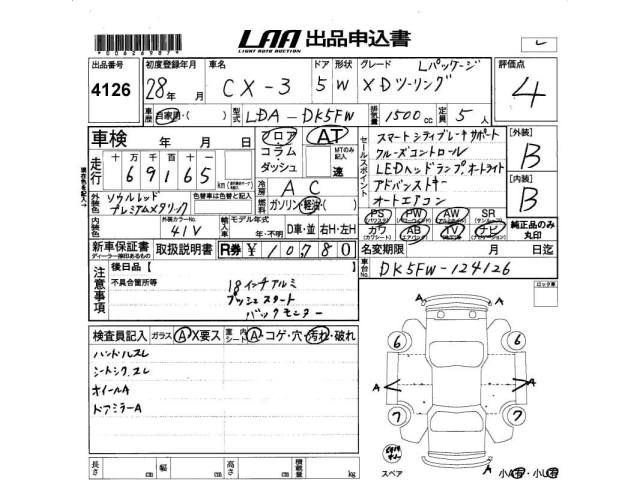 LAA 出品申込書
LIGHT AUTO AUCTION
*00626987*
出品番号 初度登録年月 車名 ドア 形状 グレード Lパッケージ 評価点
4126 28年 月 CX-3 5 W XDツーリング 4
車歴 自家用・( ) 型式 LDA-DK5FW 排気量 1500cc 定員 5人
車検 年 月 日 フロア AT スマートシティブレーキサポート [外装]
走行 十万 万 千 百 十 コラム MTのみ記入 セールスポイント クルーズコントロール B
69165 km ダッシュ 速 LEDヘッドランプ,オートライト
外装色 ソウルレッド 色替車は色替と記入 冷房 AC アドバンストキー [内装]
プレミアムメタリック 燃料 ガソリン・軽油・( ) オートエアコン B
内装色 外装カラーNo. 41V 輸入車 モデル年式 年・不明 D車・並 右H・左H
PS PW AW SR 純正品のみ
カワ AB TV ナビ 丸印
新車保証書 取扱説明書 R券 ¥10780 名変期限 月 日迄
ディーラー捺印あるもの
車台No. DK5FW-124126
注意事項 後日品【 】
不具合箇所等 18インチアルミ
プッシュスタート
バックモニター
ロック車
検査員記入 ガラス A・X要ス 室内シート A・コゲ・穴・汚れ・破れ
ハンドルスレ
シートシワ,スレ
ホイールA
ドアミラーA
A
6 6
A A
7 7
スペア A 小A有・小U有
長さ cm 幅 cm 高さ cm 積載量 kg